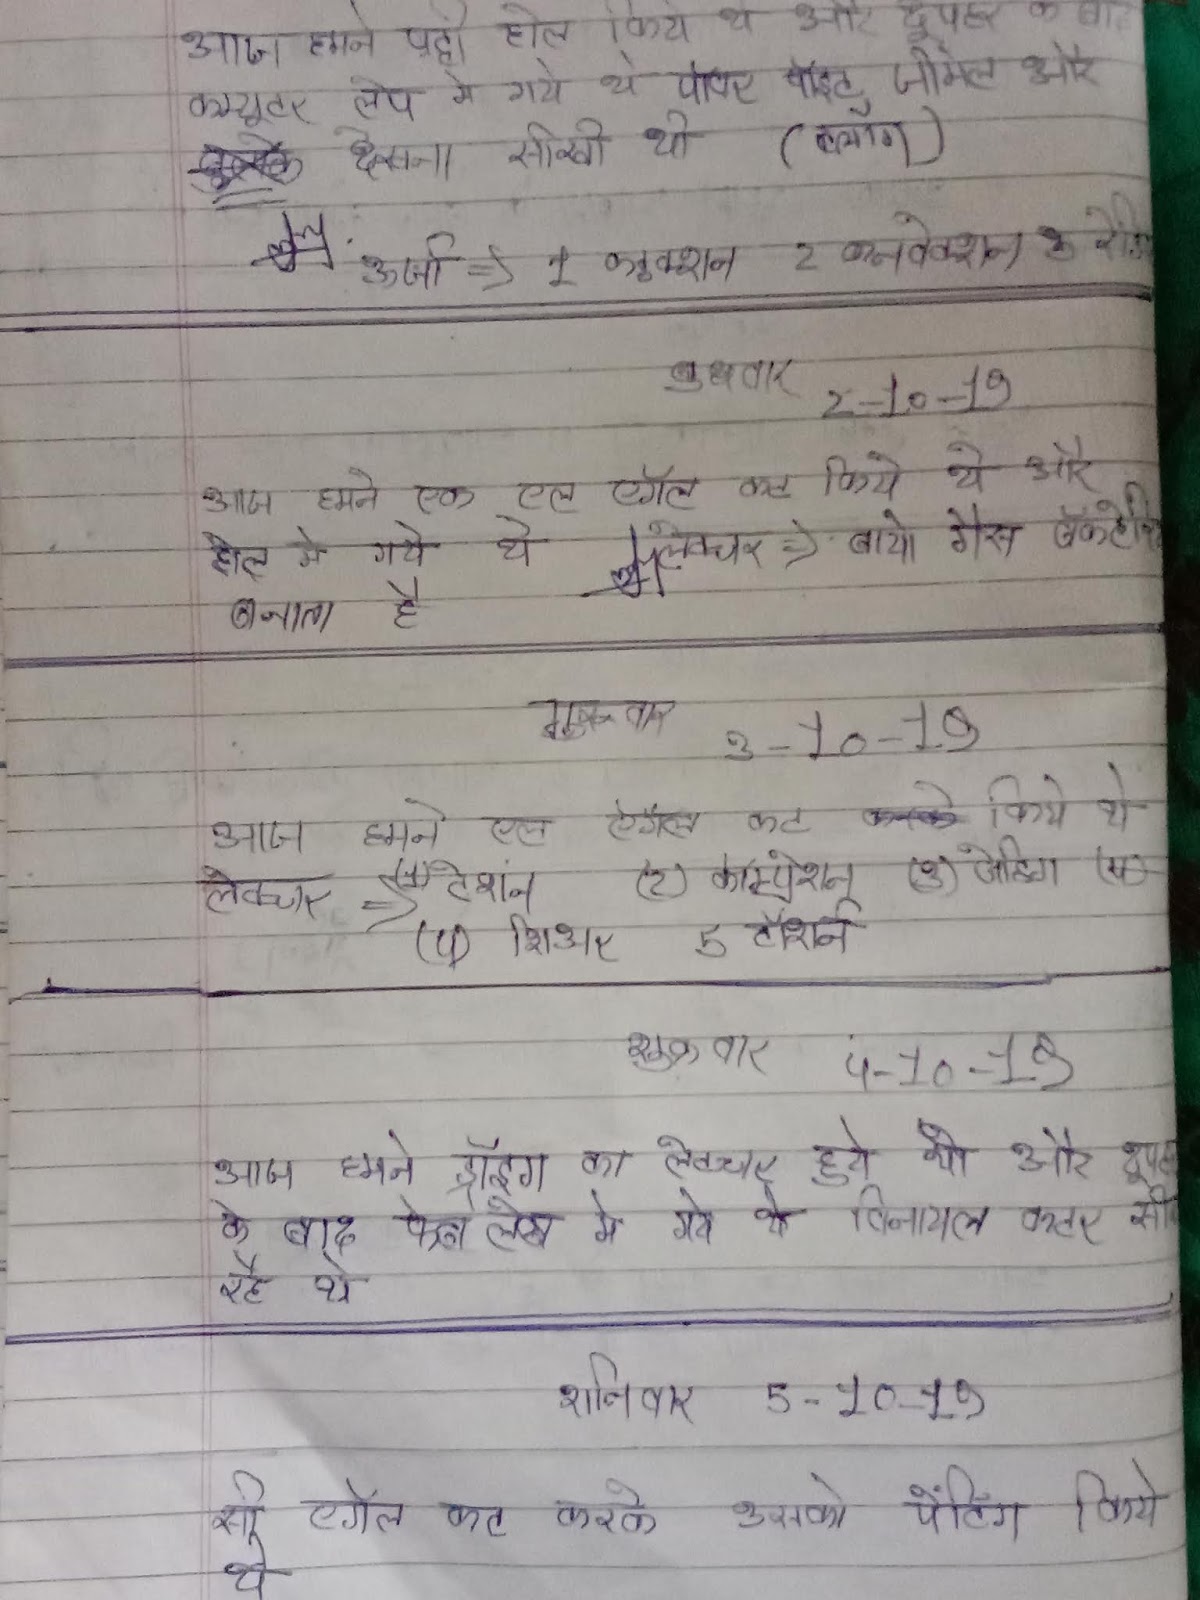 आज हमने पट्टी होल किये थे और दुपहर के बाद
कम्प्युटर लेप मे गये थे पॉवर पॉइंट, जीमेल और
देखना सीखी थी (ब्लॉग)
ऊर्जा => 1 कंडक्शन 2 कनवेक्शन 3
बुधवार 2-10-19
आज हमने एक एल एगॅल कट किये थे और
होल मे गये थे लेक्चर => बायो गैस
बनाता है
गुरुवार 3-10-19
आज हमने एल ऐगॅल कट किये थे
लेक्चर => (1) टेशंन (2) कॉम्प्रेशन (3) बेंडिग
(4) शिअर 5 टॉशर्न
शुक्रवार 4-10-19
आज हमने ड्रॉइंग का लेक्चर हुये थी और
के बाद फेब लेब मे गये थे विनायल कटर
रहे थे
शनिवार 5-10-19
सी एगॅल कट करके उसको पेंटिंग किये
थे